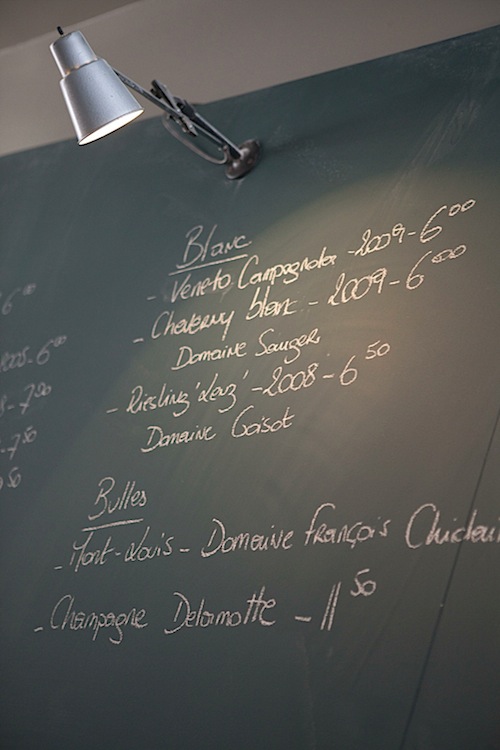 Blanc
- Veneto Campagnola - 2009 - 6⁰⁰
- Cheverny blanc - 2009 - 6⁰⁰
Domaine Sauger
- Riesling 'Lenz' - 2008 - 6⁵⁰
Domaine Goisot
Bulles
- Mont-Louis - Domaine François Chidai
- Champagne Delamotte - 11⁵⁰
6⁰⁰
2008 - 6⁰⁰
8 - 7⁰⁰
- 7⁵⁰
⁵⁰